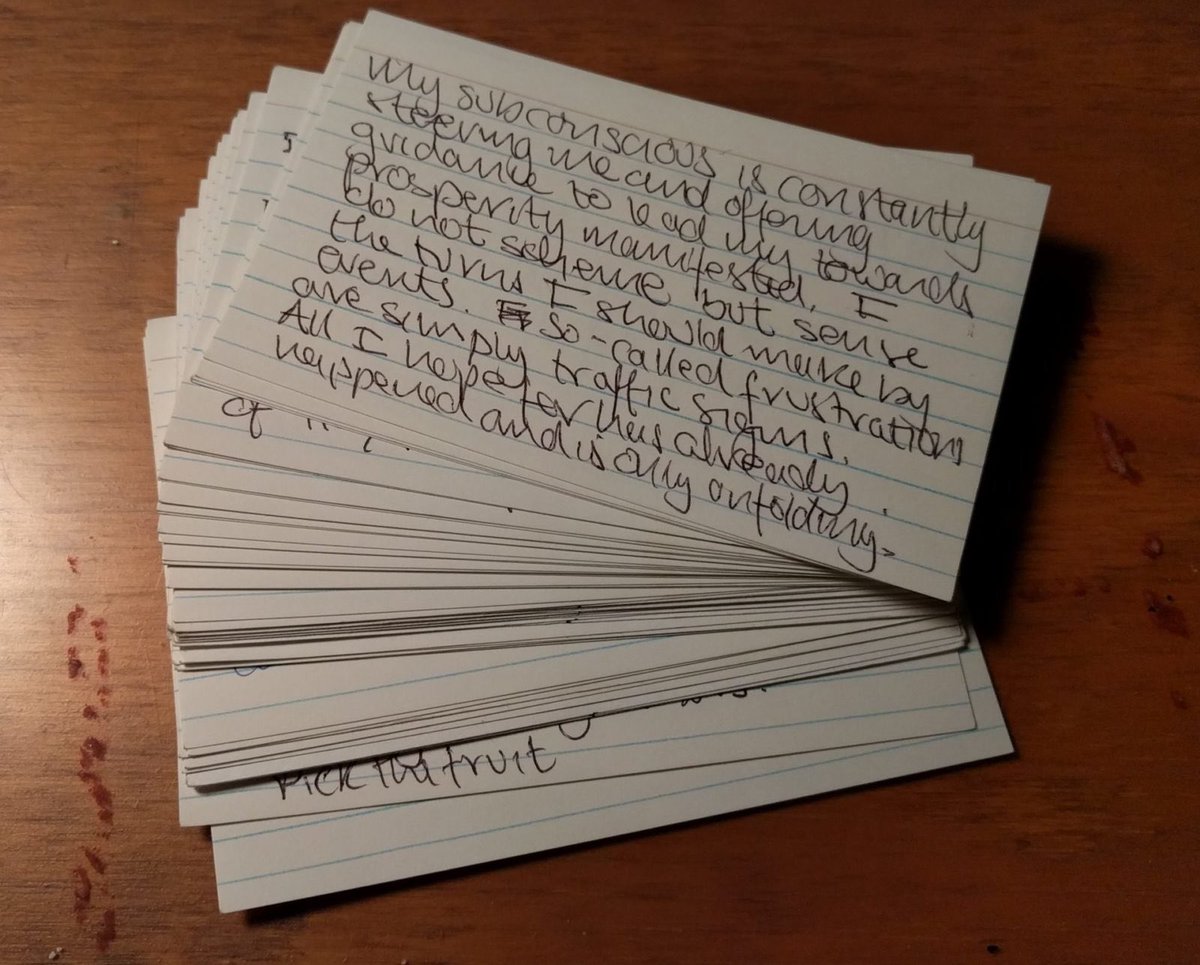 My subconscious is constantly
steering me and offering
guidance to lead my towards
prosperity manifested. I
do not scheme but sense
the turns I should make by
events. So-called frustrations
are simply traffic signs.
All I hope for has already
happened and is only unfolding.
of
Pick fruit